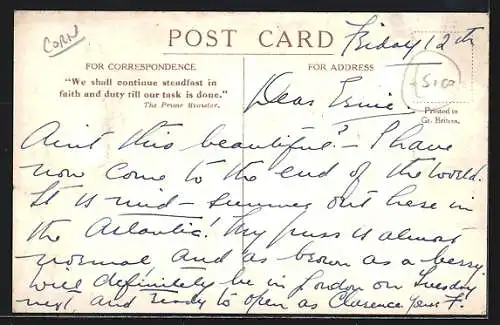 CORN
POST CARD
Friday 12th
FOR CORRESPONDENCE
FOR ADDRESS
"We shall continue steadfast in
faith and duty till our task is done."
The Prime Minister.
5.00
Printed in
Gt. Britain.
Dear Ernie.
Ain't this beautiful? – I have
now come to the end of the world.
It is mid-summer out here in
the Atlantic! My puss is almost
normal and as brown as a berry.
Will definitely be in London on Tuesday
next, and ready to open as Clarence